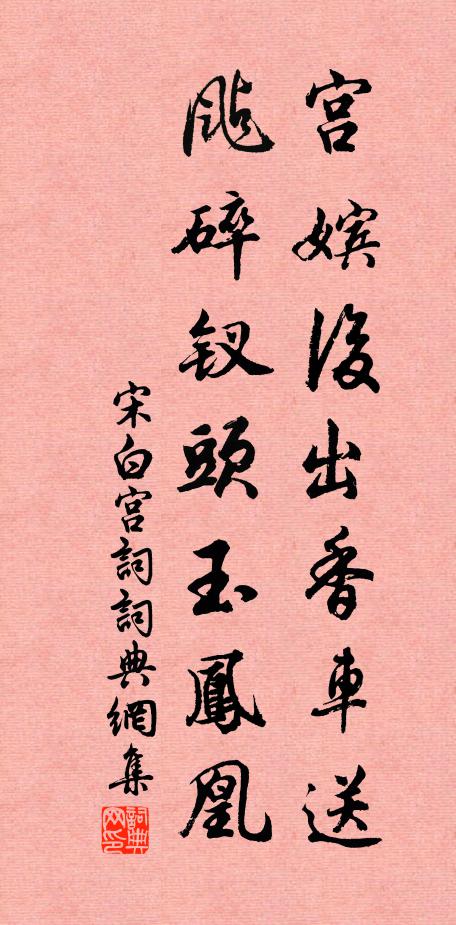 宮嬪後出香車送
颭碎釵頭玉鳳凰
宋白宮詞詞典網集
詞典網印